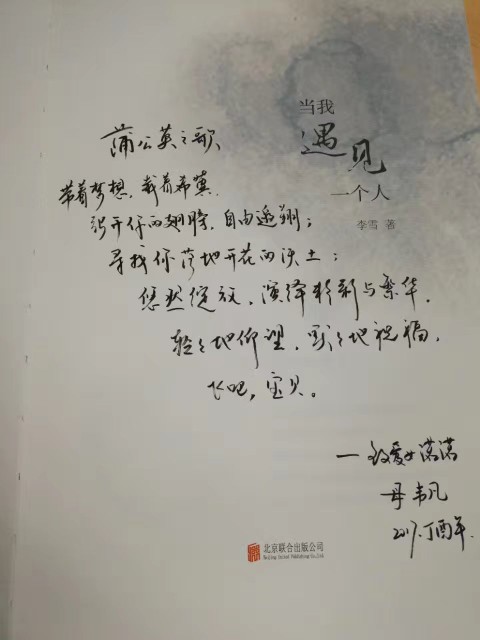 当我
遇见
一个人
李雪 著
蒲公英之歌
带着梦想,载着希冀
张开你的翅膀,自由遨翔;
寻找你落地开花的沃土;
悠然绽放,演绎精彩与繁华,
轻轻地仰望,默默地祝福,
飞吧,宝贝。
—致爱女潇潇
母 韦凡
2017.丁酉年
北京联合出版公司
Beijing United Publishing Co.,Ltd.